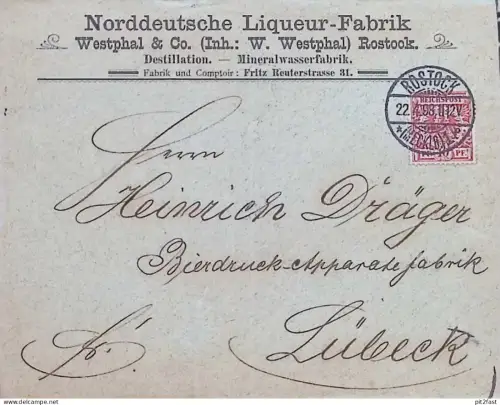 Norddeutsche Liqueur-Fabrik
Westphal & Co. (Inh.: W. Westphal) Rostock.
Destillation. — Mineralwasserfabrik.
Fabrik und Comptoir: Fritz Reuterstrasse 31.
ROSTOCK
REICHSPOST
22.
12V
(MECKLB)
PF
Herrn
Heinrich Dräger
Bierdruck-Apparatefabrik
Fr.
Lübeck
www.delcampe.net
pit2fast